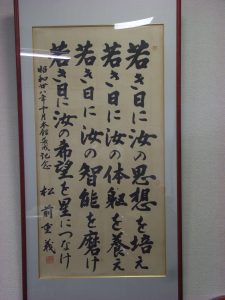 若き日に汝の思想を培え
若き日に汝の体躯を養え
若き日に汝の智能を磨け
若き日に汝の希望を星につなげ
昭和廿八年十月本館落成記念
松前重義